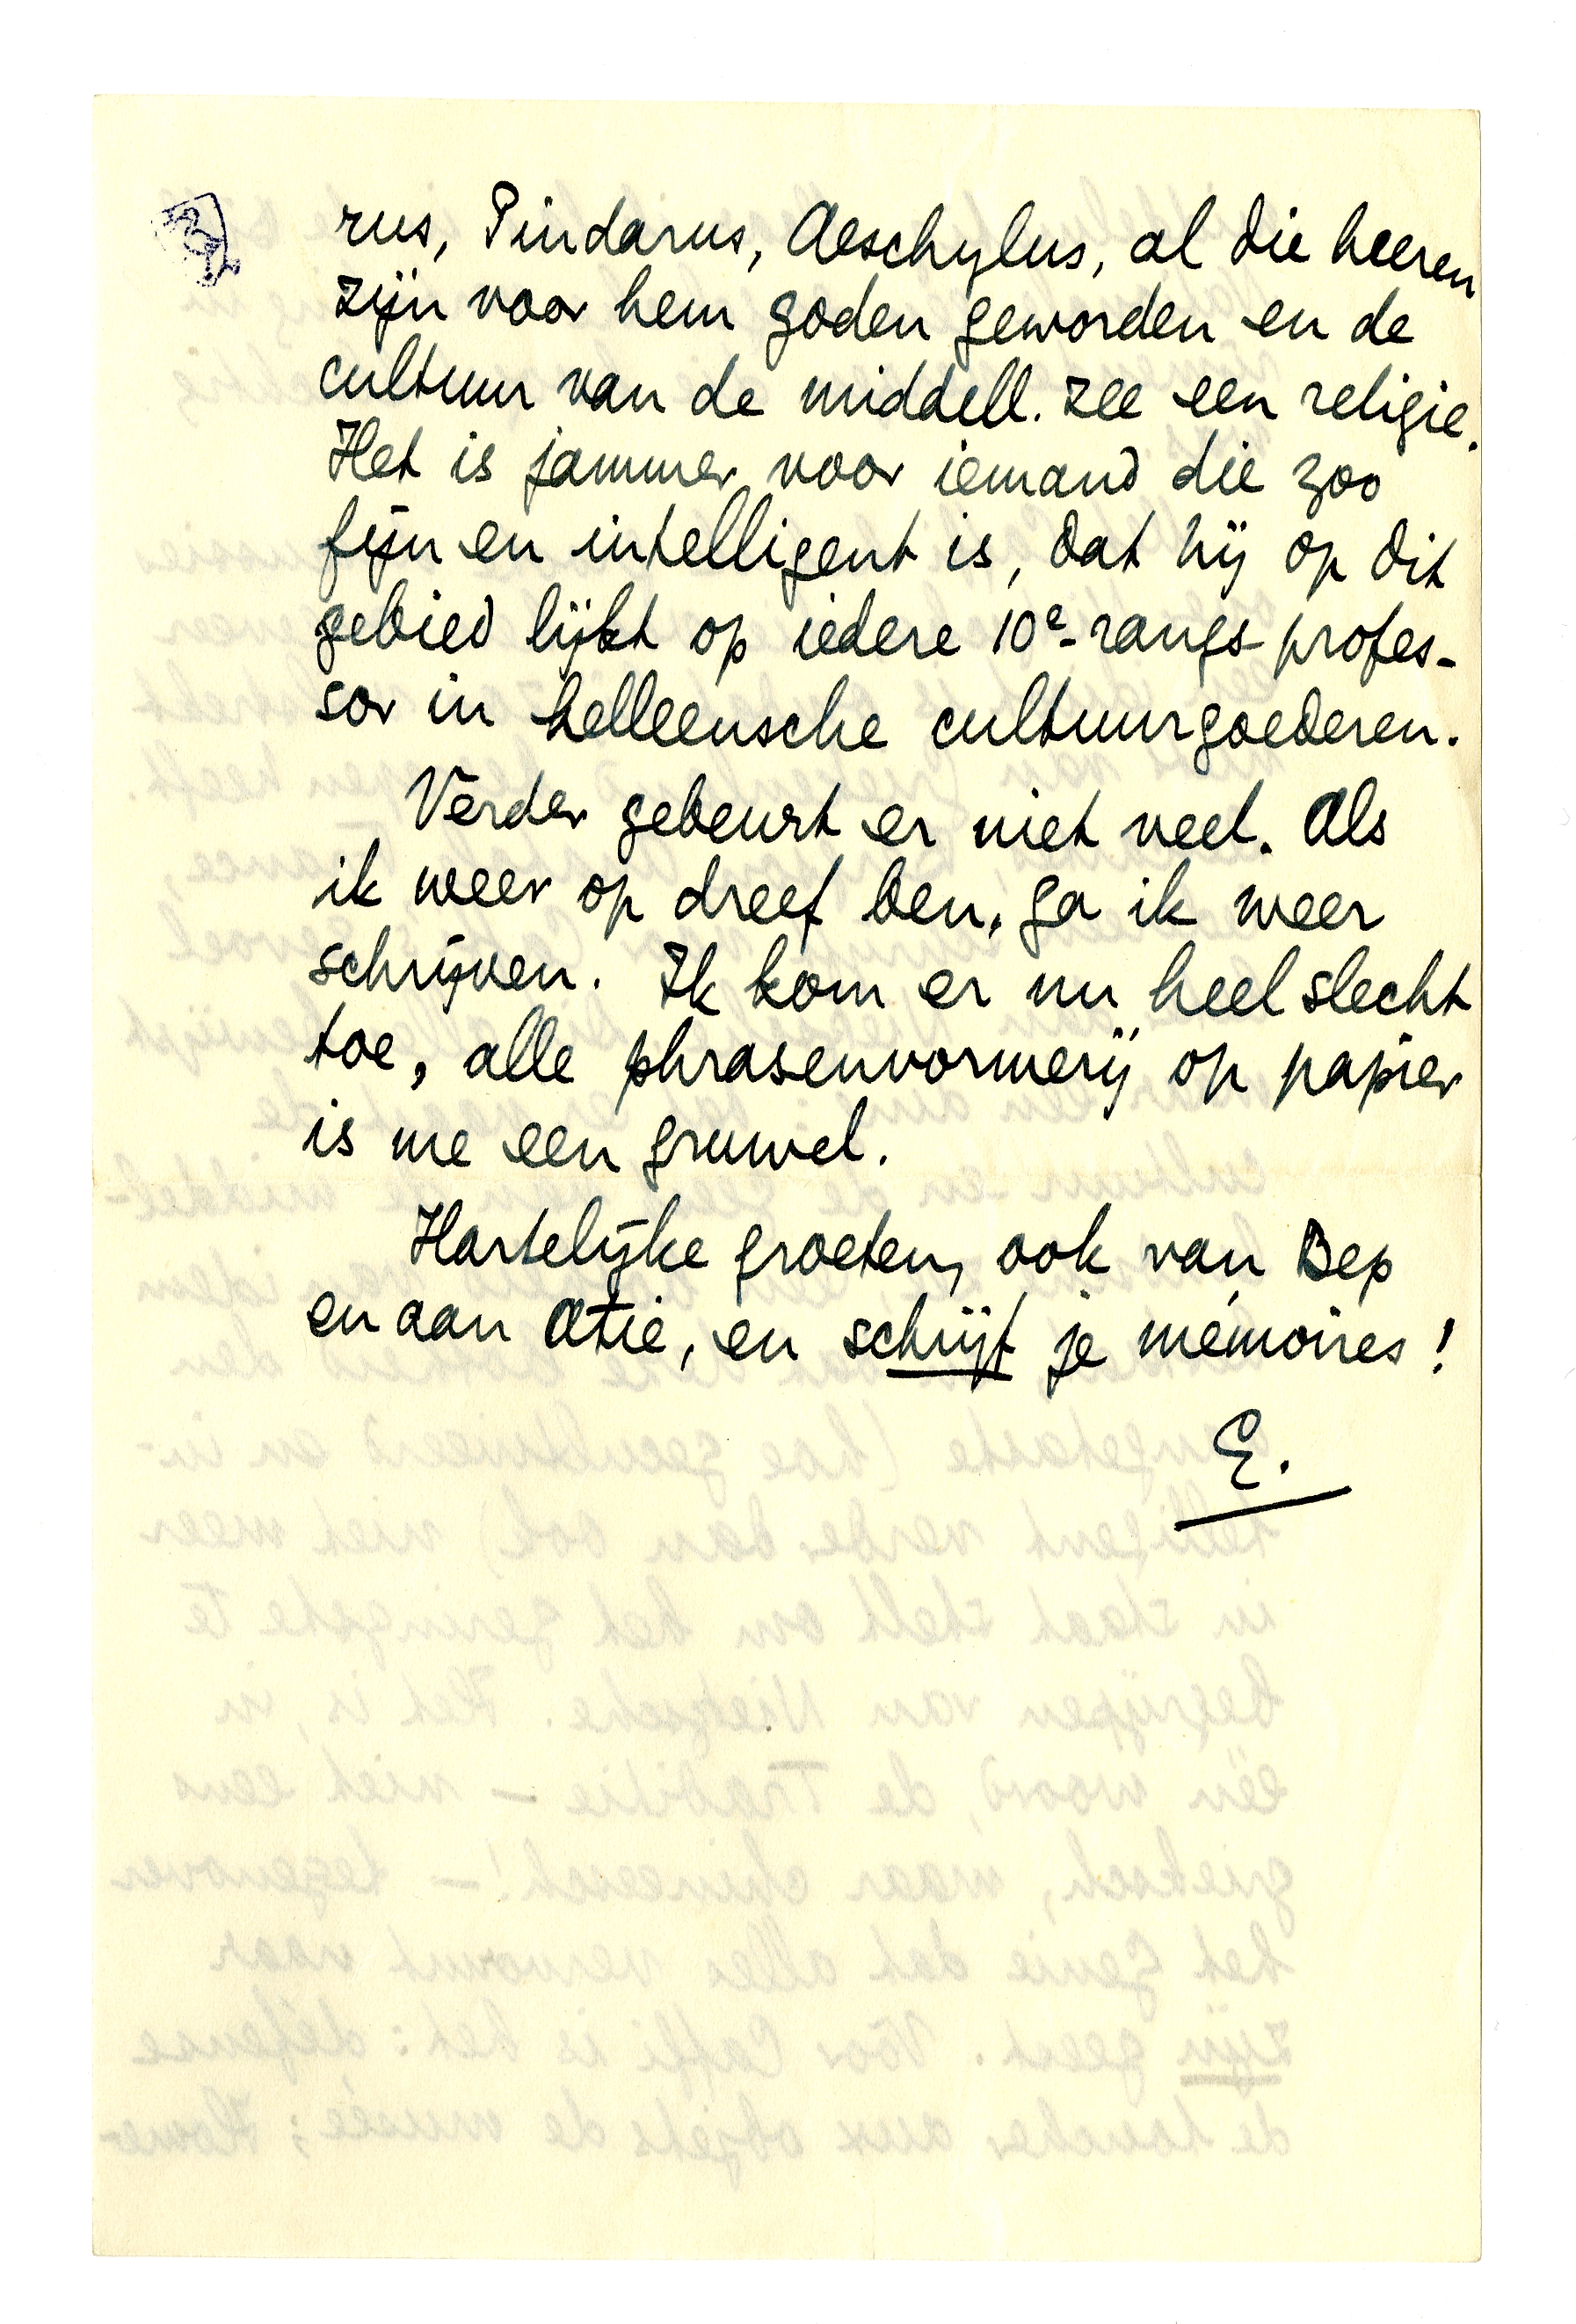 rus, Pindarus, Aeschylus, al die heeren
zijn voor hem goden geworden en de
cultuur van de middell. zee een religie.
Het is jammer voor iemand die zoo
fijn en intelligent is, dat hij op dit
gebied lijkt op iedere 10e-rangs profes-
sor in helleensche cultuurgoederen.
Verder gebeurt er niet veel. Als
ik weer op dreef ben, ga ik weer
schrijven. Ik kom er nu heel slecht
toe, alle phrasenvormerij op papier
is me een gruwel.
Hartelijke groeten, ook van Bep
en aan Atie, en schrijf je mémoires!
E.